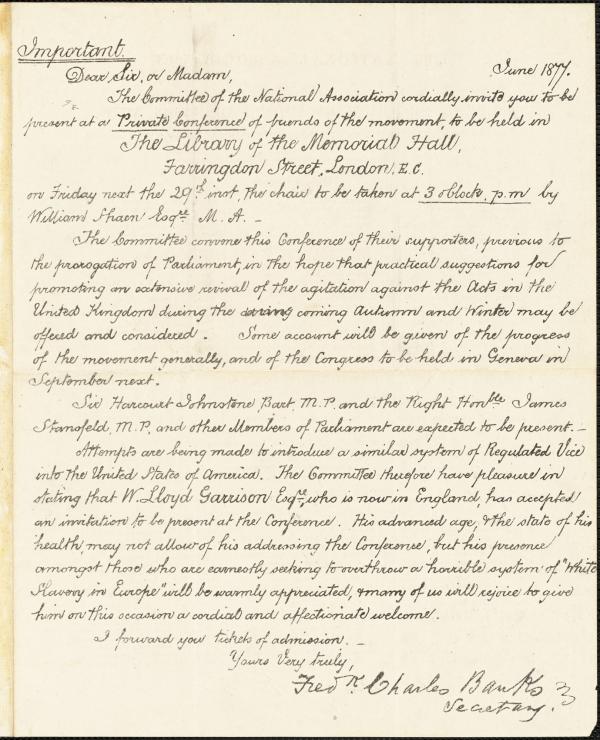 Important.
Dear Sir, or Madam, June 1877.
The Committee of the National Association cordially invite you to be
present at a Private Conference of friends of the movement, to be held in
The Library of the Memorial Hall,
Farringdon Street, London, E.C.
on Friday next the 29th inst, the chair to be taken at 3 o'clock, p.m by
William Shaen Esqre M. A. –
The Committee convene this Conference of their supporters, previous to
the prorogation of Parliament, in the hope that practical suggestions for
promoting an extensive revival of the agitation against the Acts in the
United Kingdom during the coming Autumn and Winter may be
offered and considered. Some account will be given of the progress
of the movement generally, and of the Congress to be held in Geneva in
September next.
Sir Harcourt Johnstone Bart. M.P. and the Right Honble James
Stansfeld, M.P. and other Members of Parliament are expected to be present. –
Attempts are being made to introduce a similar system of Regulated Vice
into the United States of America. The Committee therefore have pleasure in
stating that W. Lloyd Garrison Esqre, who is now in England, has accepted
an invitation to be present at the Conference. His advanced age, & the state of his
health, may not allow of his addressing the Conference, but his presence
amongst those who are earnestly seeking to overthrow a horrible system of "White
Slavery in Europe" will be warmly appreciated, & many of us will rejoice to give
him on this occasion a cordial and affectionate welcome.
I forward you tickets of admission. –
Yours Very truly,
Fredk. Charles Banks
Secretary.